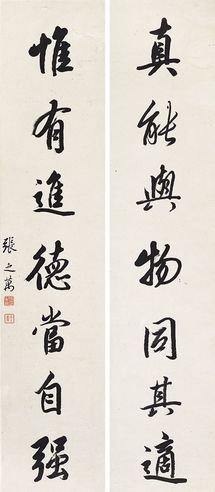 真能與物同其適
惟有進德當自强
張之萬